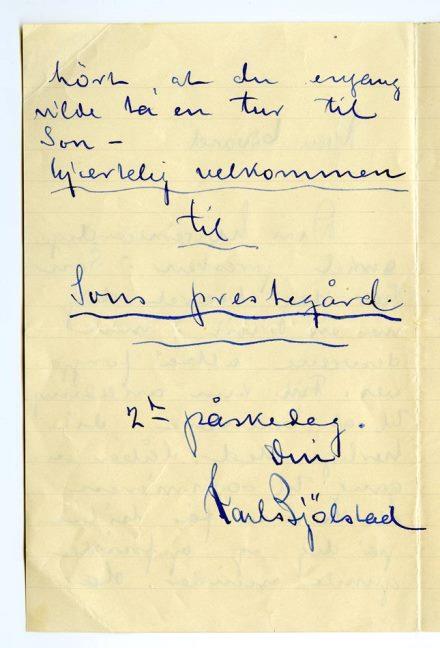 hört at du engang
vilde ta en tur til
Son -
hjertelig velkommen
til
Sons prestegård.
2den påskedag.
Din
Karl Bjölstad